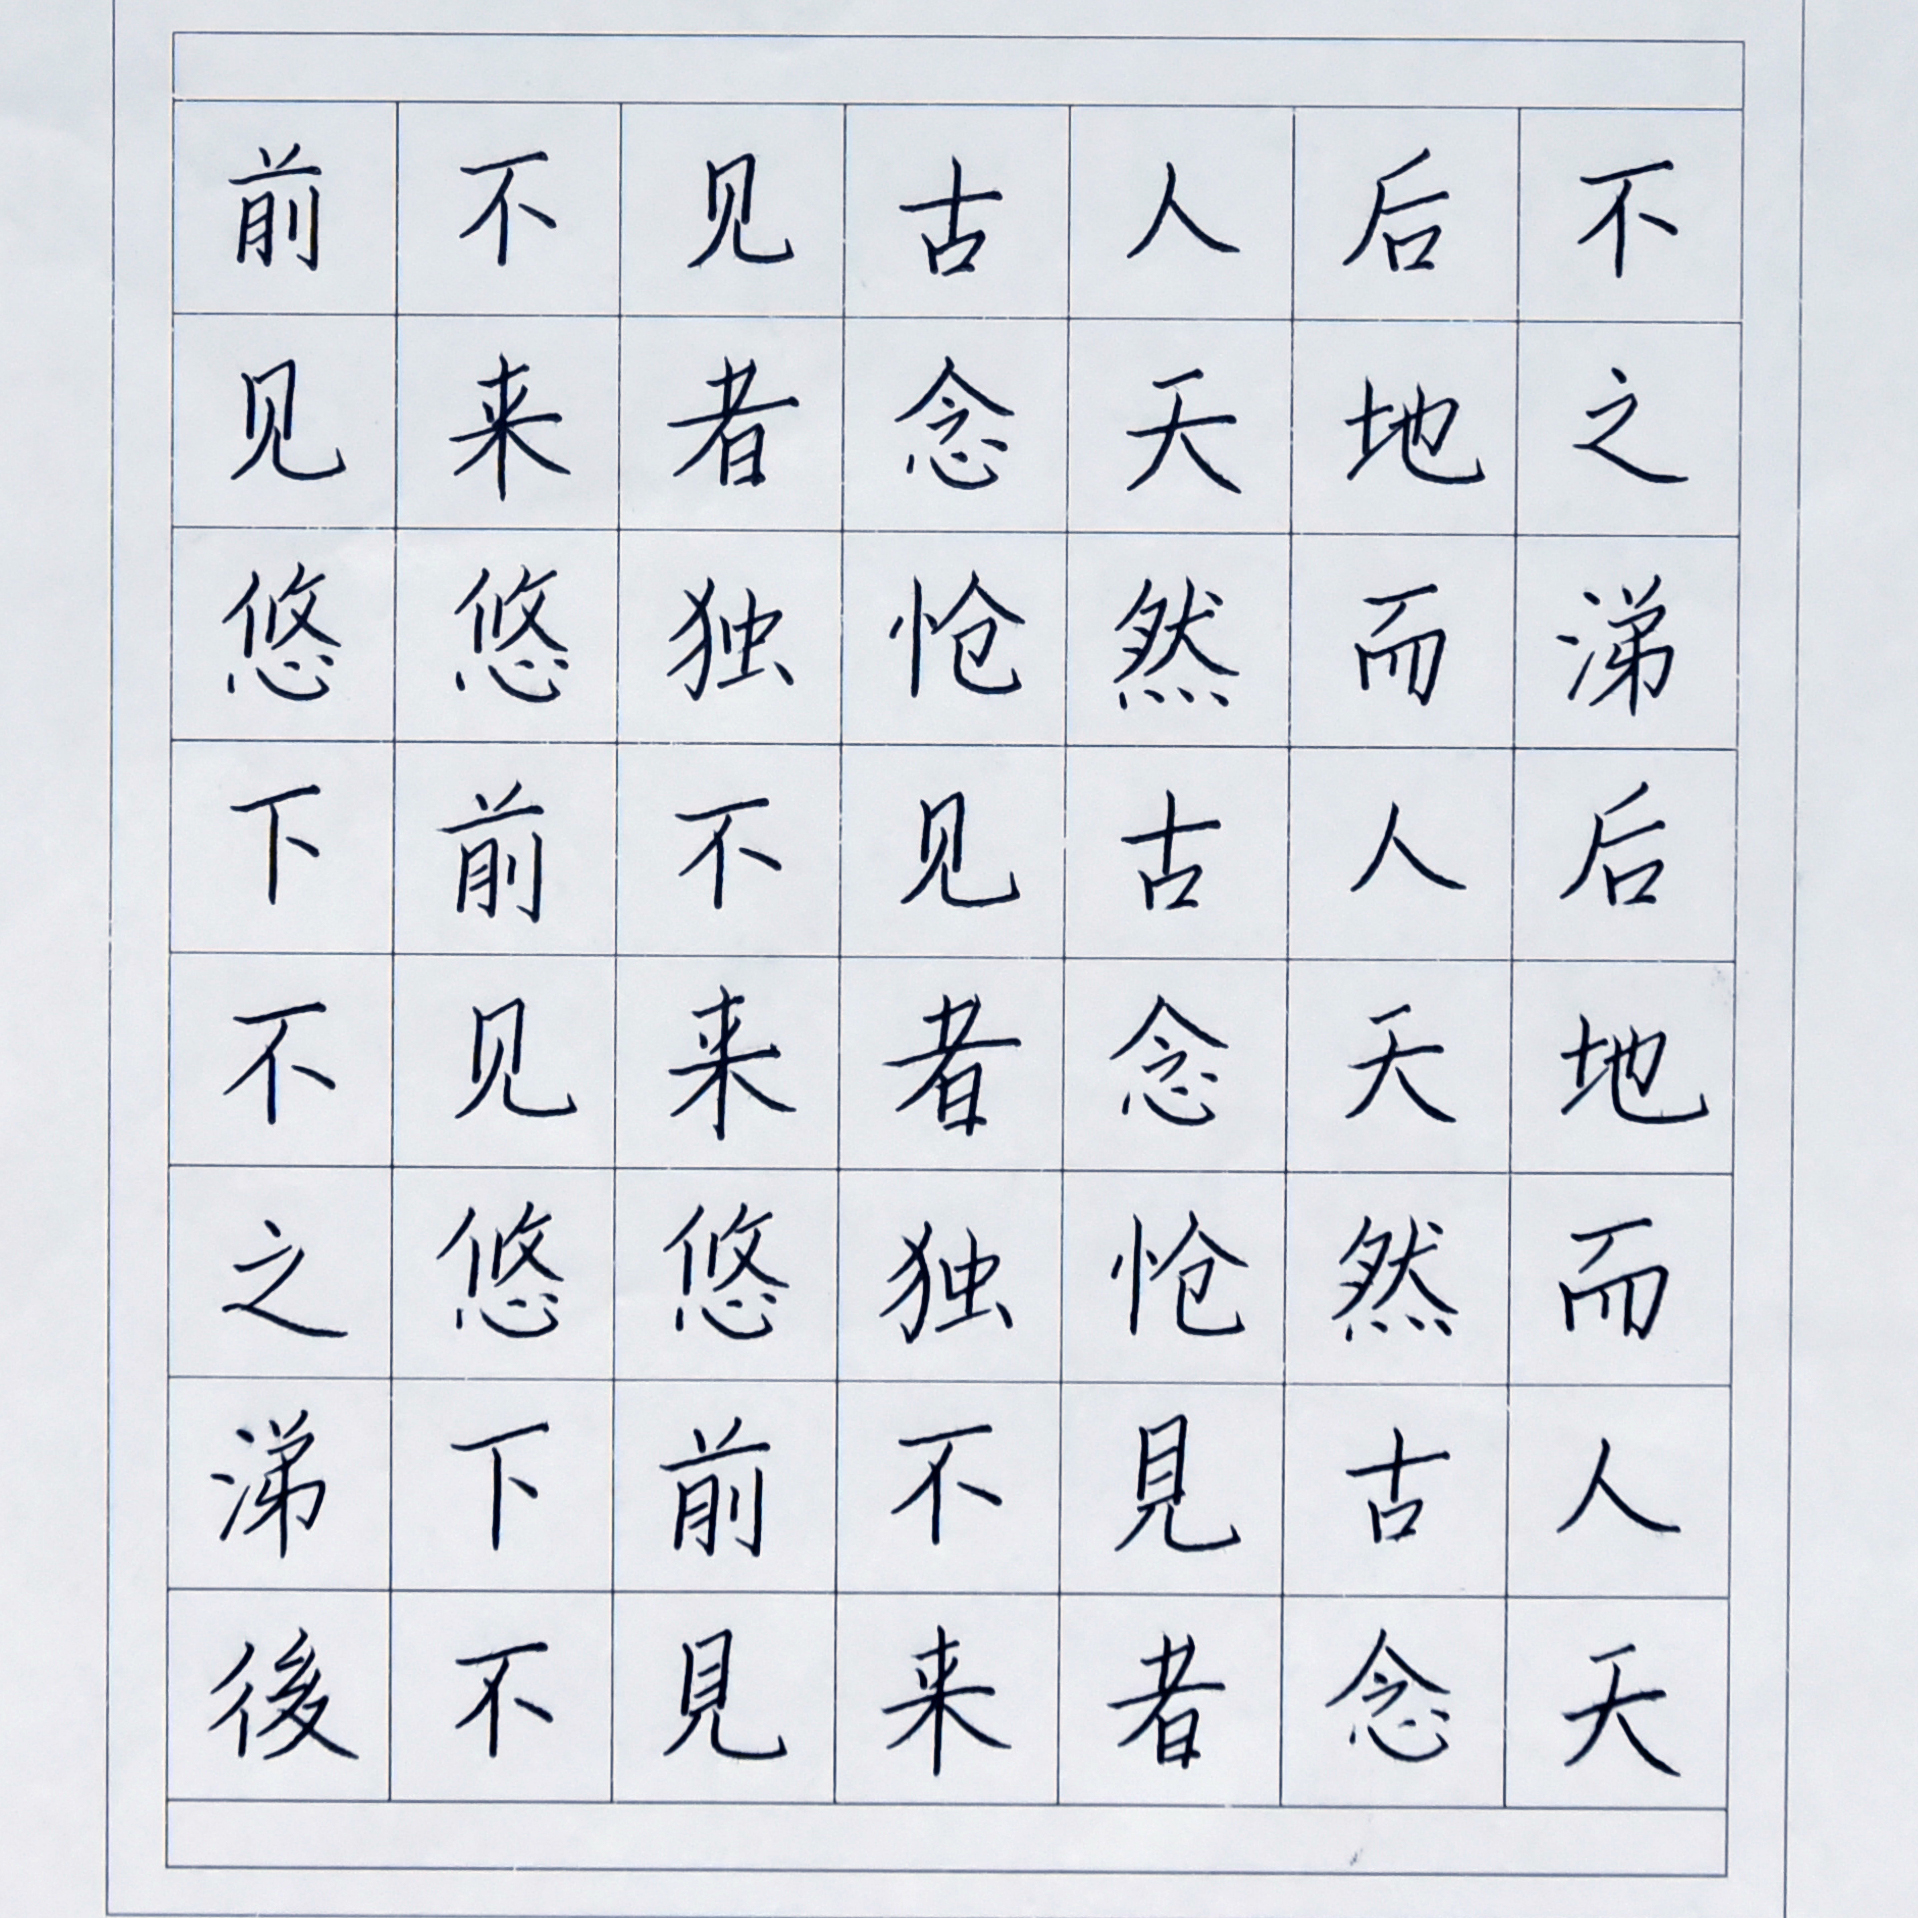 前不见古人后不
见来者念天地之
悠悠独怆然而涕
下前不见古人后
不见来者念天地
之悠悠独怆然而
涕下前不見古人
後不見来者念天